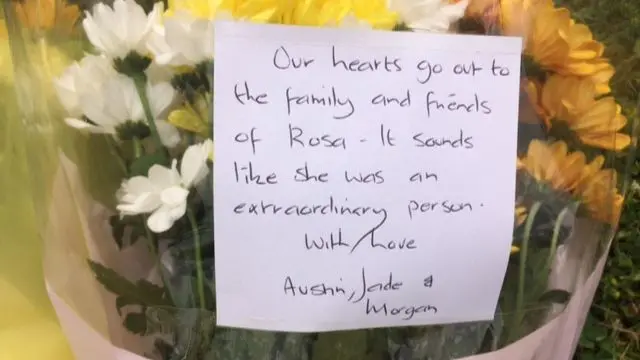 Our hearts go out to
the family and friends
of Rosa - It sounds
like she was an
extraordinary person.
With Love
Austin, Jade &
Morgan